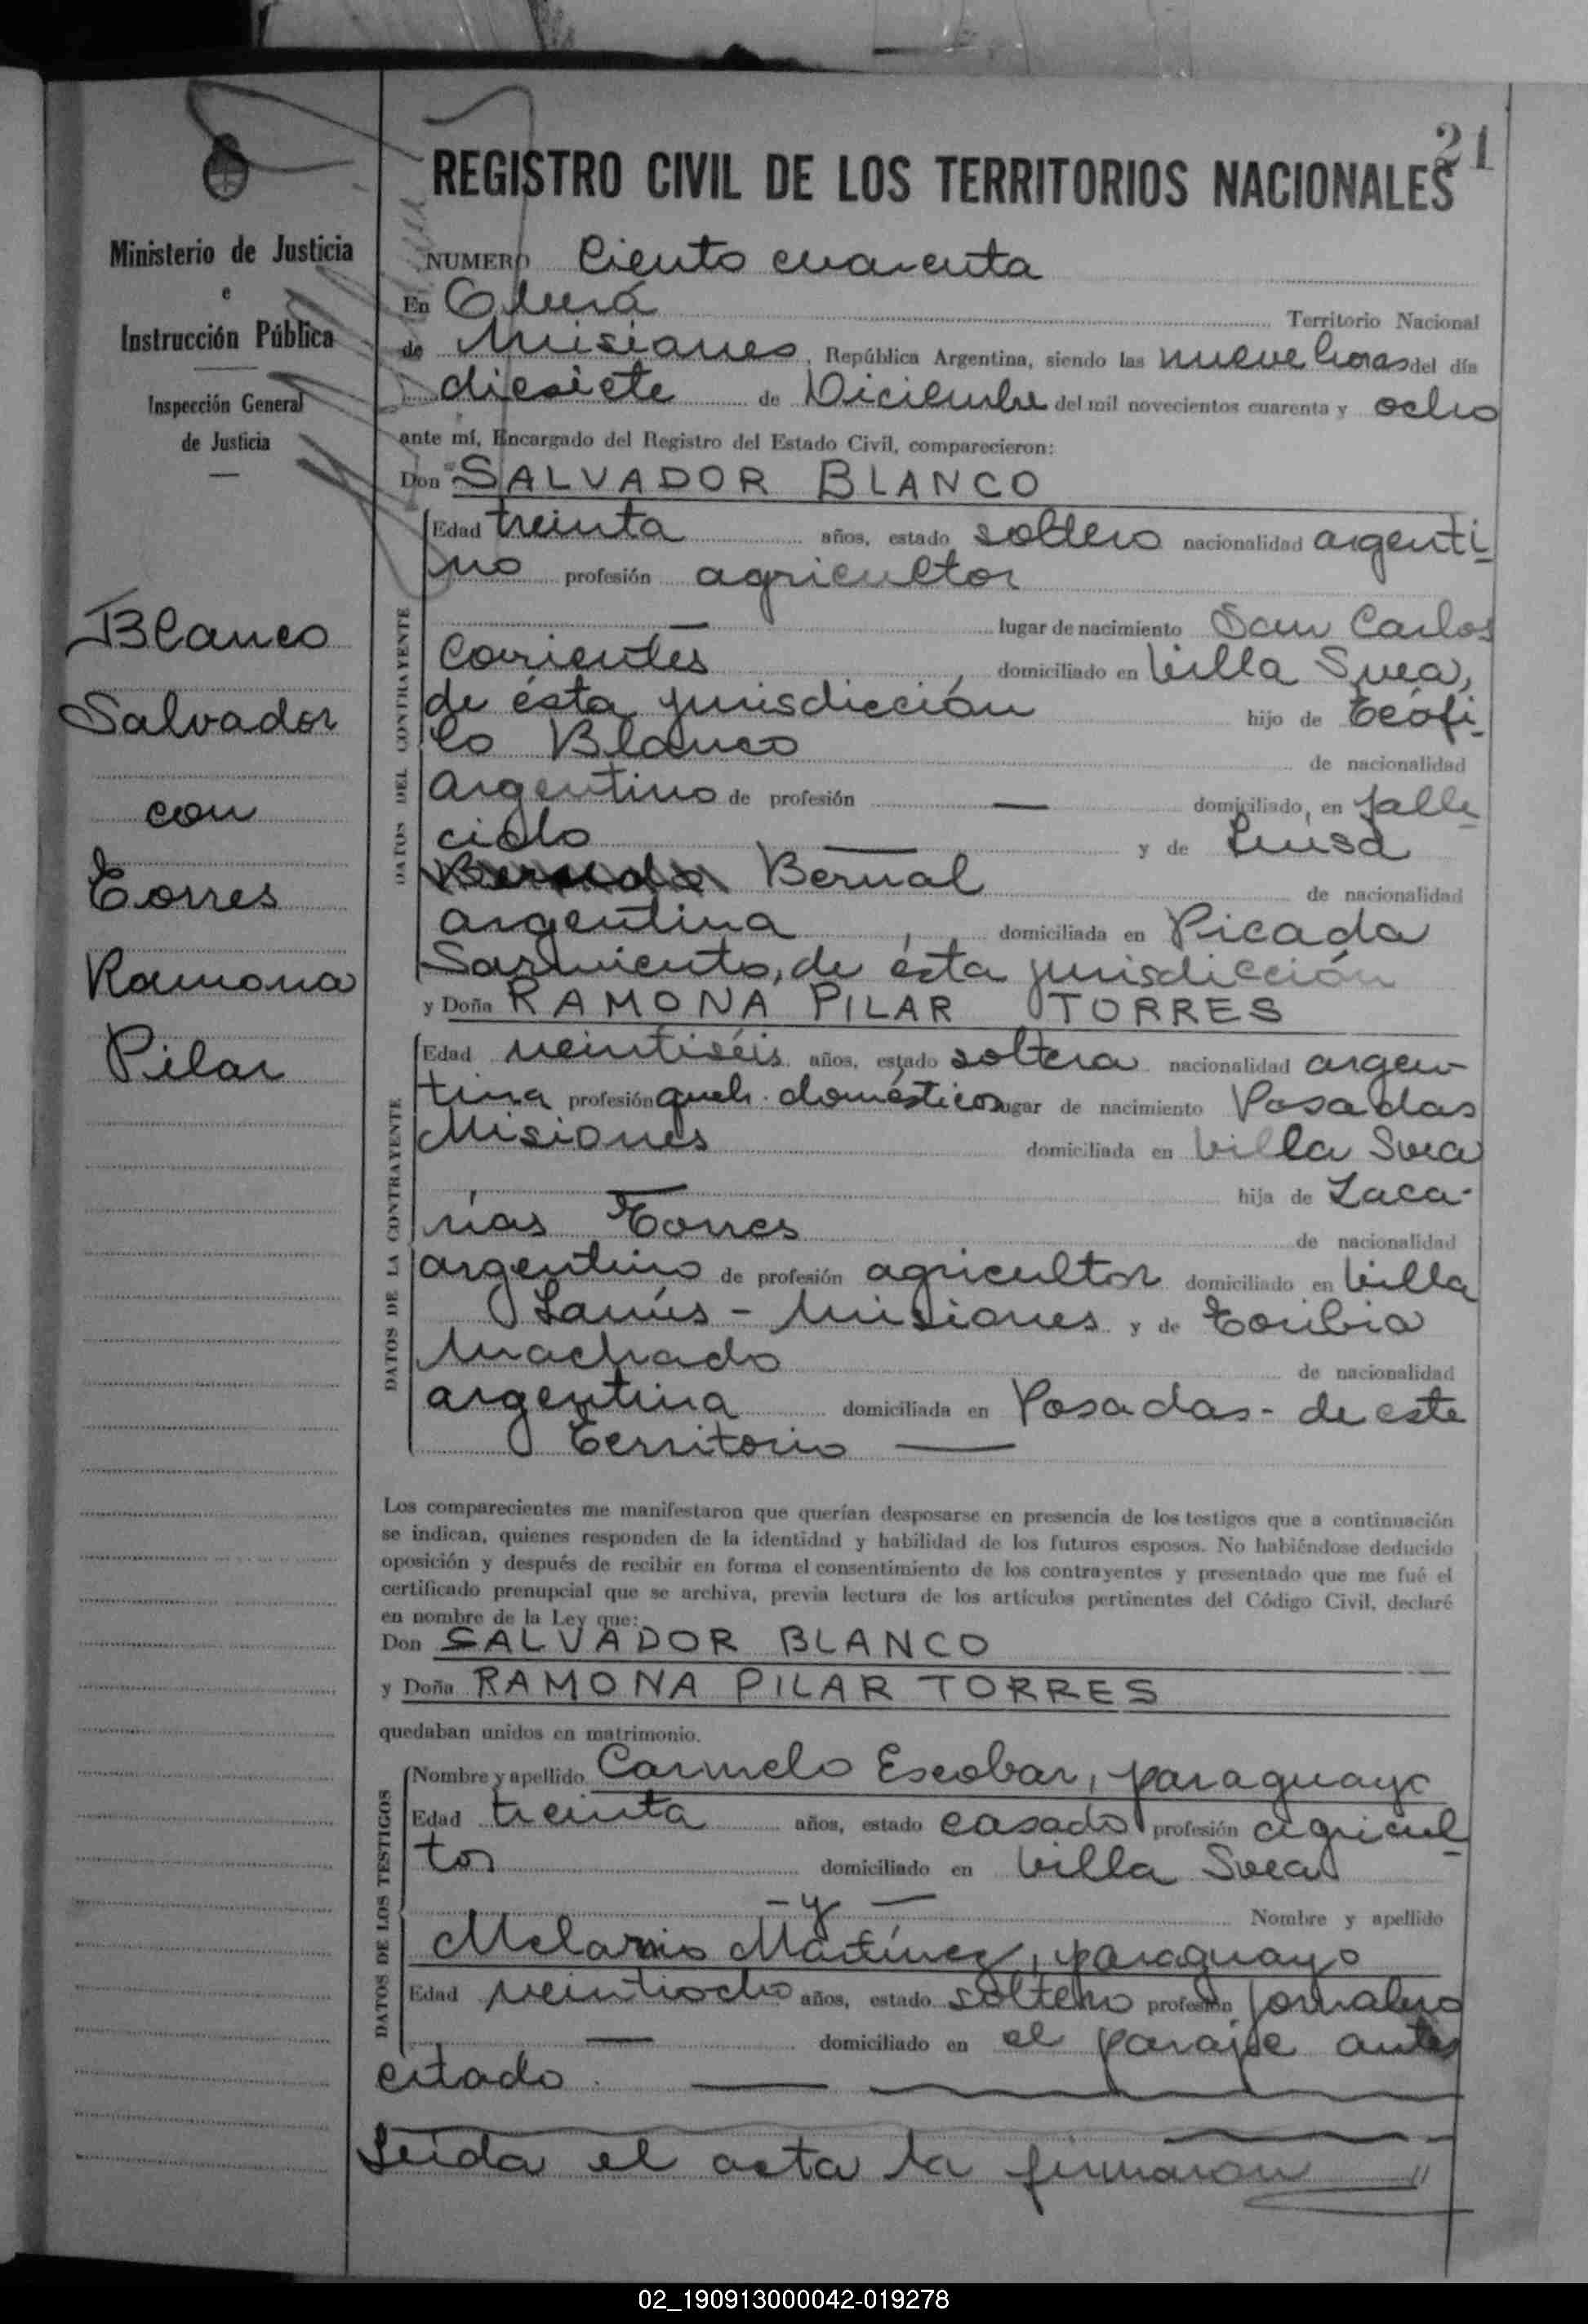 21
REGISTRO CIVIL DE LOS TERRITORIOS NACIONALES
Ministerio de Justicia
e
Instrucción Pública
Inspección General
de Justicia
Blanco
Salvador
con
Torres
Ramona
Pilar
NUMERO Ciento cuarenta
En Oberá Territorio Nacional
de Misiones, República Argentina, siendo las nueve horas del día
diesiete de Diciembre del mil novecientos cuarenta y ocho
ante mí, Encargado del Registro del Estado Civil, comparecieron:
Don SALVADOR BLANCO
DATOS DEL CONTRAYENTE
Edad treinta años, estado soltero nacionalidad argenti-
no profesión agricultor
— lugar de nacimiento San Carlos
Corrientes, domiciliado en Villa Svea,
de ésta jurisdicción hijo de Teófi-
lo Blanco de nacionalidad
argentino de profesión — domiciliado, en falle-
cido — y de Luisa
Bernal de nacionalidad
argentina, domiciliada en Picada
Sarmiento, de ésta jurisdicción
y Doña RAMONA PILAR TORRES
DATOS DE LA CONTRAYENTE
Edad veintiséis años, estado soltera nacionalidad argen-
tina profesión queh. domésticos lugar de nacimiento Posadas
Misiones domiciliada en Villa Svea
— hija de Zaca-
rías Torres de nacionalidad
argentino de profesión agricultor domiciliado en Villa
Lanús - Misiones y de Toribia
Machado de nacionalidad
argentina domiciliada en Posadas - de este
Territorio —
Los comparecientes me manifestaron que querían desposarse en presencia de los testigos que a continuación
se indican, quienes responden de la identidad y habilidad de los futuros esposos. No habiéndose deducido
oposición y después de recibir en forma el consentimiento de los contrayentes y presentado que me fué el
certificado prenupcial que se archiva, previa lectura de los artículos pertinentes del Código Civil, declaré
en nombre de la Ley que:
Don SALVADOR BLANCO
y Doña RAMONA PILAR TORRES
quedaban unidos en matrimonio.
DATOS DE LOS TESTIGOS
Nombre y apellido Carmelo Escobar, paraguayo
Edad treinta años, estado casado profesión agricul-
tor domiciliado en Villa Svea
— y — Nombre y apellido
Melanio Martínez, paraguayo
Edad veintiocho años, estado soltero profesión jornalero
— domiciliado en el paraje antes
citado. —
Leída el acta la firmaron —"
02_190913000042-019278